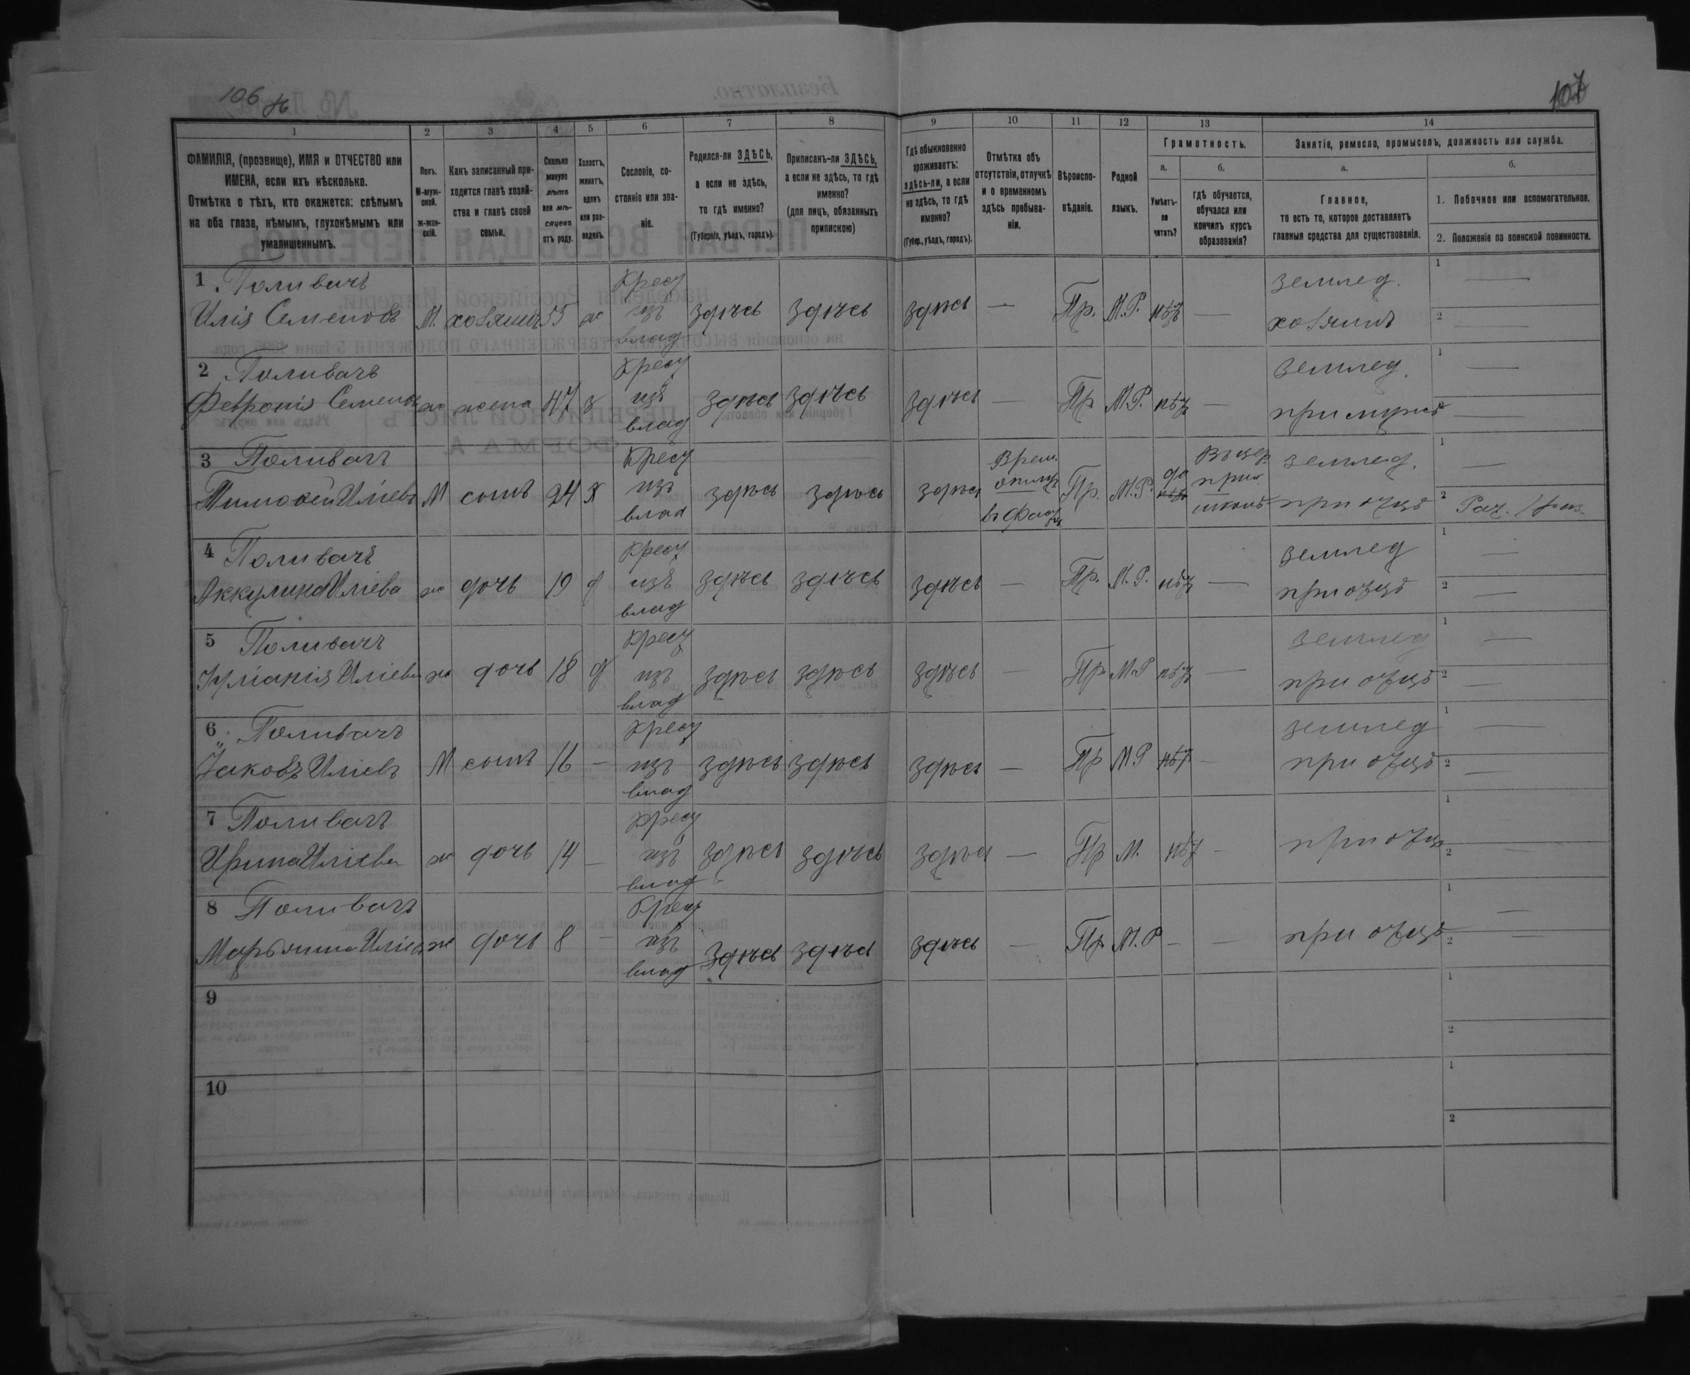 106
107
1 2 3 4 5 6 7 8 9 10 11 12 13 14
ФАМИЛІЯ, (прозвище), ИМЯ и ОТЧЕСТВО или ИМЕНА, если ихъ нѣсколько.
Отмѣтка о тѣхъ, кто окажется: слѣпымъ на оба глаза, нѣмымъ, глухонѣмымъ или умалишеннымъ.
Полъ.
М-муж-ской.
ж-жен-скій.
Какъ записанный при-ходится главѣ хозяй-ства и главѣ своей семьи.
Сколько минуло лѣтъ или мѣ-сяцевъ отъ роду.
Холостъ, женатъ, вдовъ или раз-веденъ.
Сословіе, со-стояніе или зва-ніе.
Родился-ли ЗДѢСЬ, а если не здѣсь, то гдѣ именно?
(Губернія, уѣздъ, городъ).
Приписанъ-ли ЗДѢСЬ, а если не здѣсь, то гдѣ именно?
(для лицъ, обязанныхъ припискою)
Гдѣ обыкновенно проживаетъ: здѣсь-ли, а если не здѣсь, то гдѣ именно?
(Губер., уѣздъ, городъ).
Отмѣтка объ отсутствіи, отлучкѣ и о временномъ здѣсь пребыва-ніи.
Вѣроиспо-вѣданіе.
Родной языкъ.
Грамотность.
а.
Умѣетъ-ли читать?
б.
гдѣ обучается, обучался или кончилъ курсъ образованія?
Занятіе, ремесло, промыселъ, должность или служба.
а.
Главное,
то есть то, которое доставляетъ главныя средства для существованія.
б.
1. Побочное или вспомогательное.
2. Положеніе по воинской повинности.
1 Поливачъ Илія Семеновъ М. хозяинъ 55 ж Крест изъ влад здѣсь здѣсь здѣсь — Пр. М.Р. нѣт — землед. хозяинъ 1 — 2 —
2 Поливачъ Февронія Семенова ж жена 47 з Крест изъ влад здѣсь здѣсь здѣсь — Пр. М.Р. нѣт — землед. при мужѣ 1 — 2 —
3 Поливачъ Тимофей Иліевъ М сынъ 24 х Крест изъ влад здѣсь здѣсь здѣсь Врем. Пр. М.Р. да нѣт В цер. прих школѣ землед. при отцѣ 1 — 2
4 Поливачъ Аккулина Иліева ж дочь 19 д Крест изъ влад здѣсь здѣсь здѣсь — Пр. М.Р. нѣт — землед при отцѣ 1 — 2 —
5 Поливачъ Иліева ж дочь 18 д Крест изъ влад здѣсь здѣсь здѣсь — Пр. М.Р нѣт — землед при отцѣ 1 — 2 —
6 Поливачъ Яковъ Иліевъ М сынъ 16 — Крест изъ влад здѣсь здѣсь здѣсь — Пр М.Р нѣт — землед при отцѣ 1 — 2 —
7 Поливачъ Ирина Иліева ж дочь 14 — Крест изъ влад здѣсь здѣсь здѣсь — Пр М. нѣт — при отцѣ 1 — 2
8 Поливачъ Марьянна Иліева ж дочь 8 — Крест изъ влад здѣсь здѣсь здѣсь — Пр М.Р — — при отцѣ 1 — 2 —
9 1 2
10 1 2